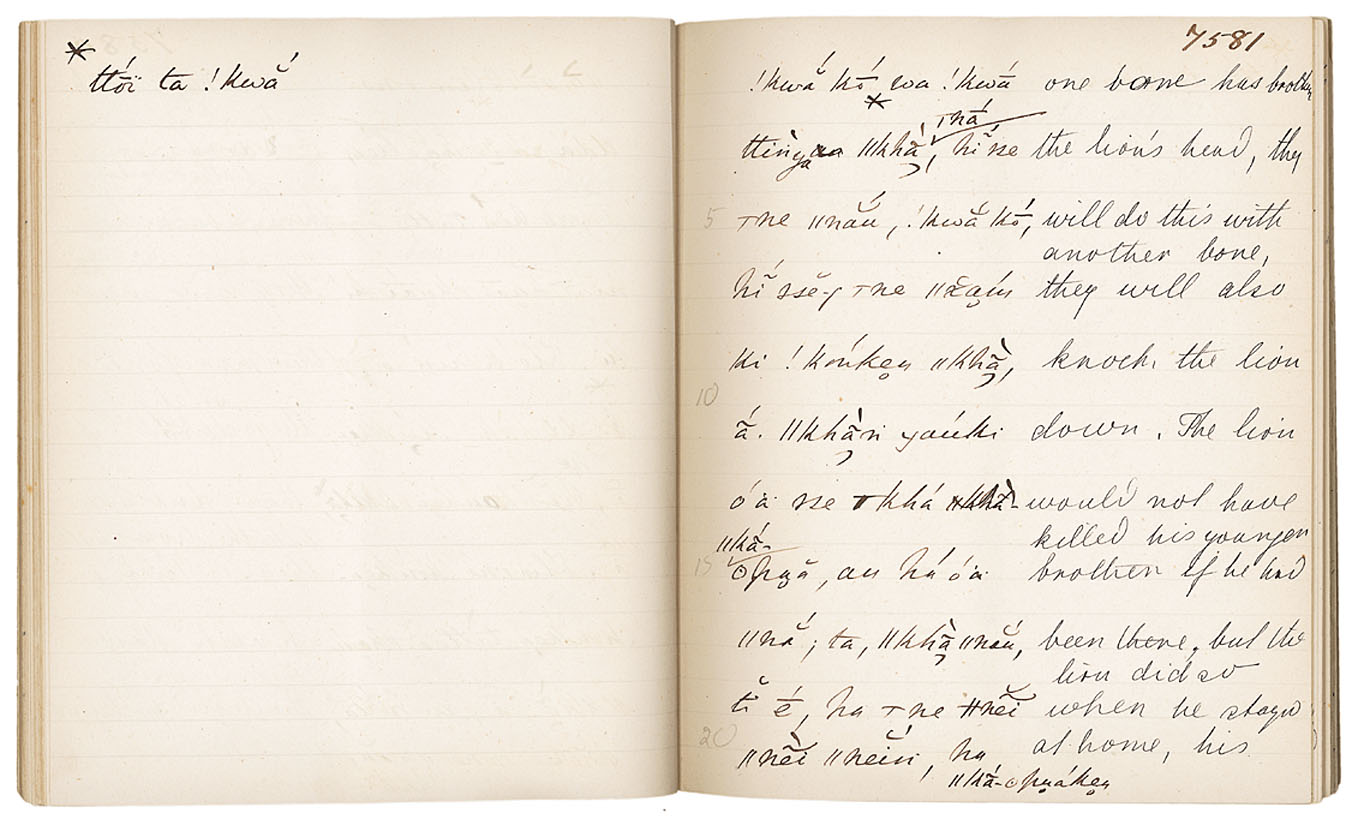 *
ttó̄ï ta !kwắ
7581
!kwắ kṓ, wa !kwā́ one bone has broken
*
ǀná̄
ttìnya ǁkhā̀, hĭ́ se the lion's head, they
5 ⊤ne ǁnắu, !kwắ kṓ, will do this with
another bone,
hĭ́ ssĕ-g ⊤ne ǁx̆am they will also
ki !kóṅken ǁkhā̀, knock the lion
10
ā́. ǁkhā̀ṅ yaúki down. The lion
óä se ǀkhá would not have
killed his younger
ǁkā́-
15 ʘpuă, au há óä brother if he had
ǁnắ; ta, ǁkhā̀ ǁnău, been there, but the
lion did so
tĭ é̄, ha ⊤ne ǂnĕï when he stayed
20 at home, his
ǁnĕ̀ï ǁneiṅ, ha
ǁkā́-ʘpuáken